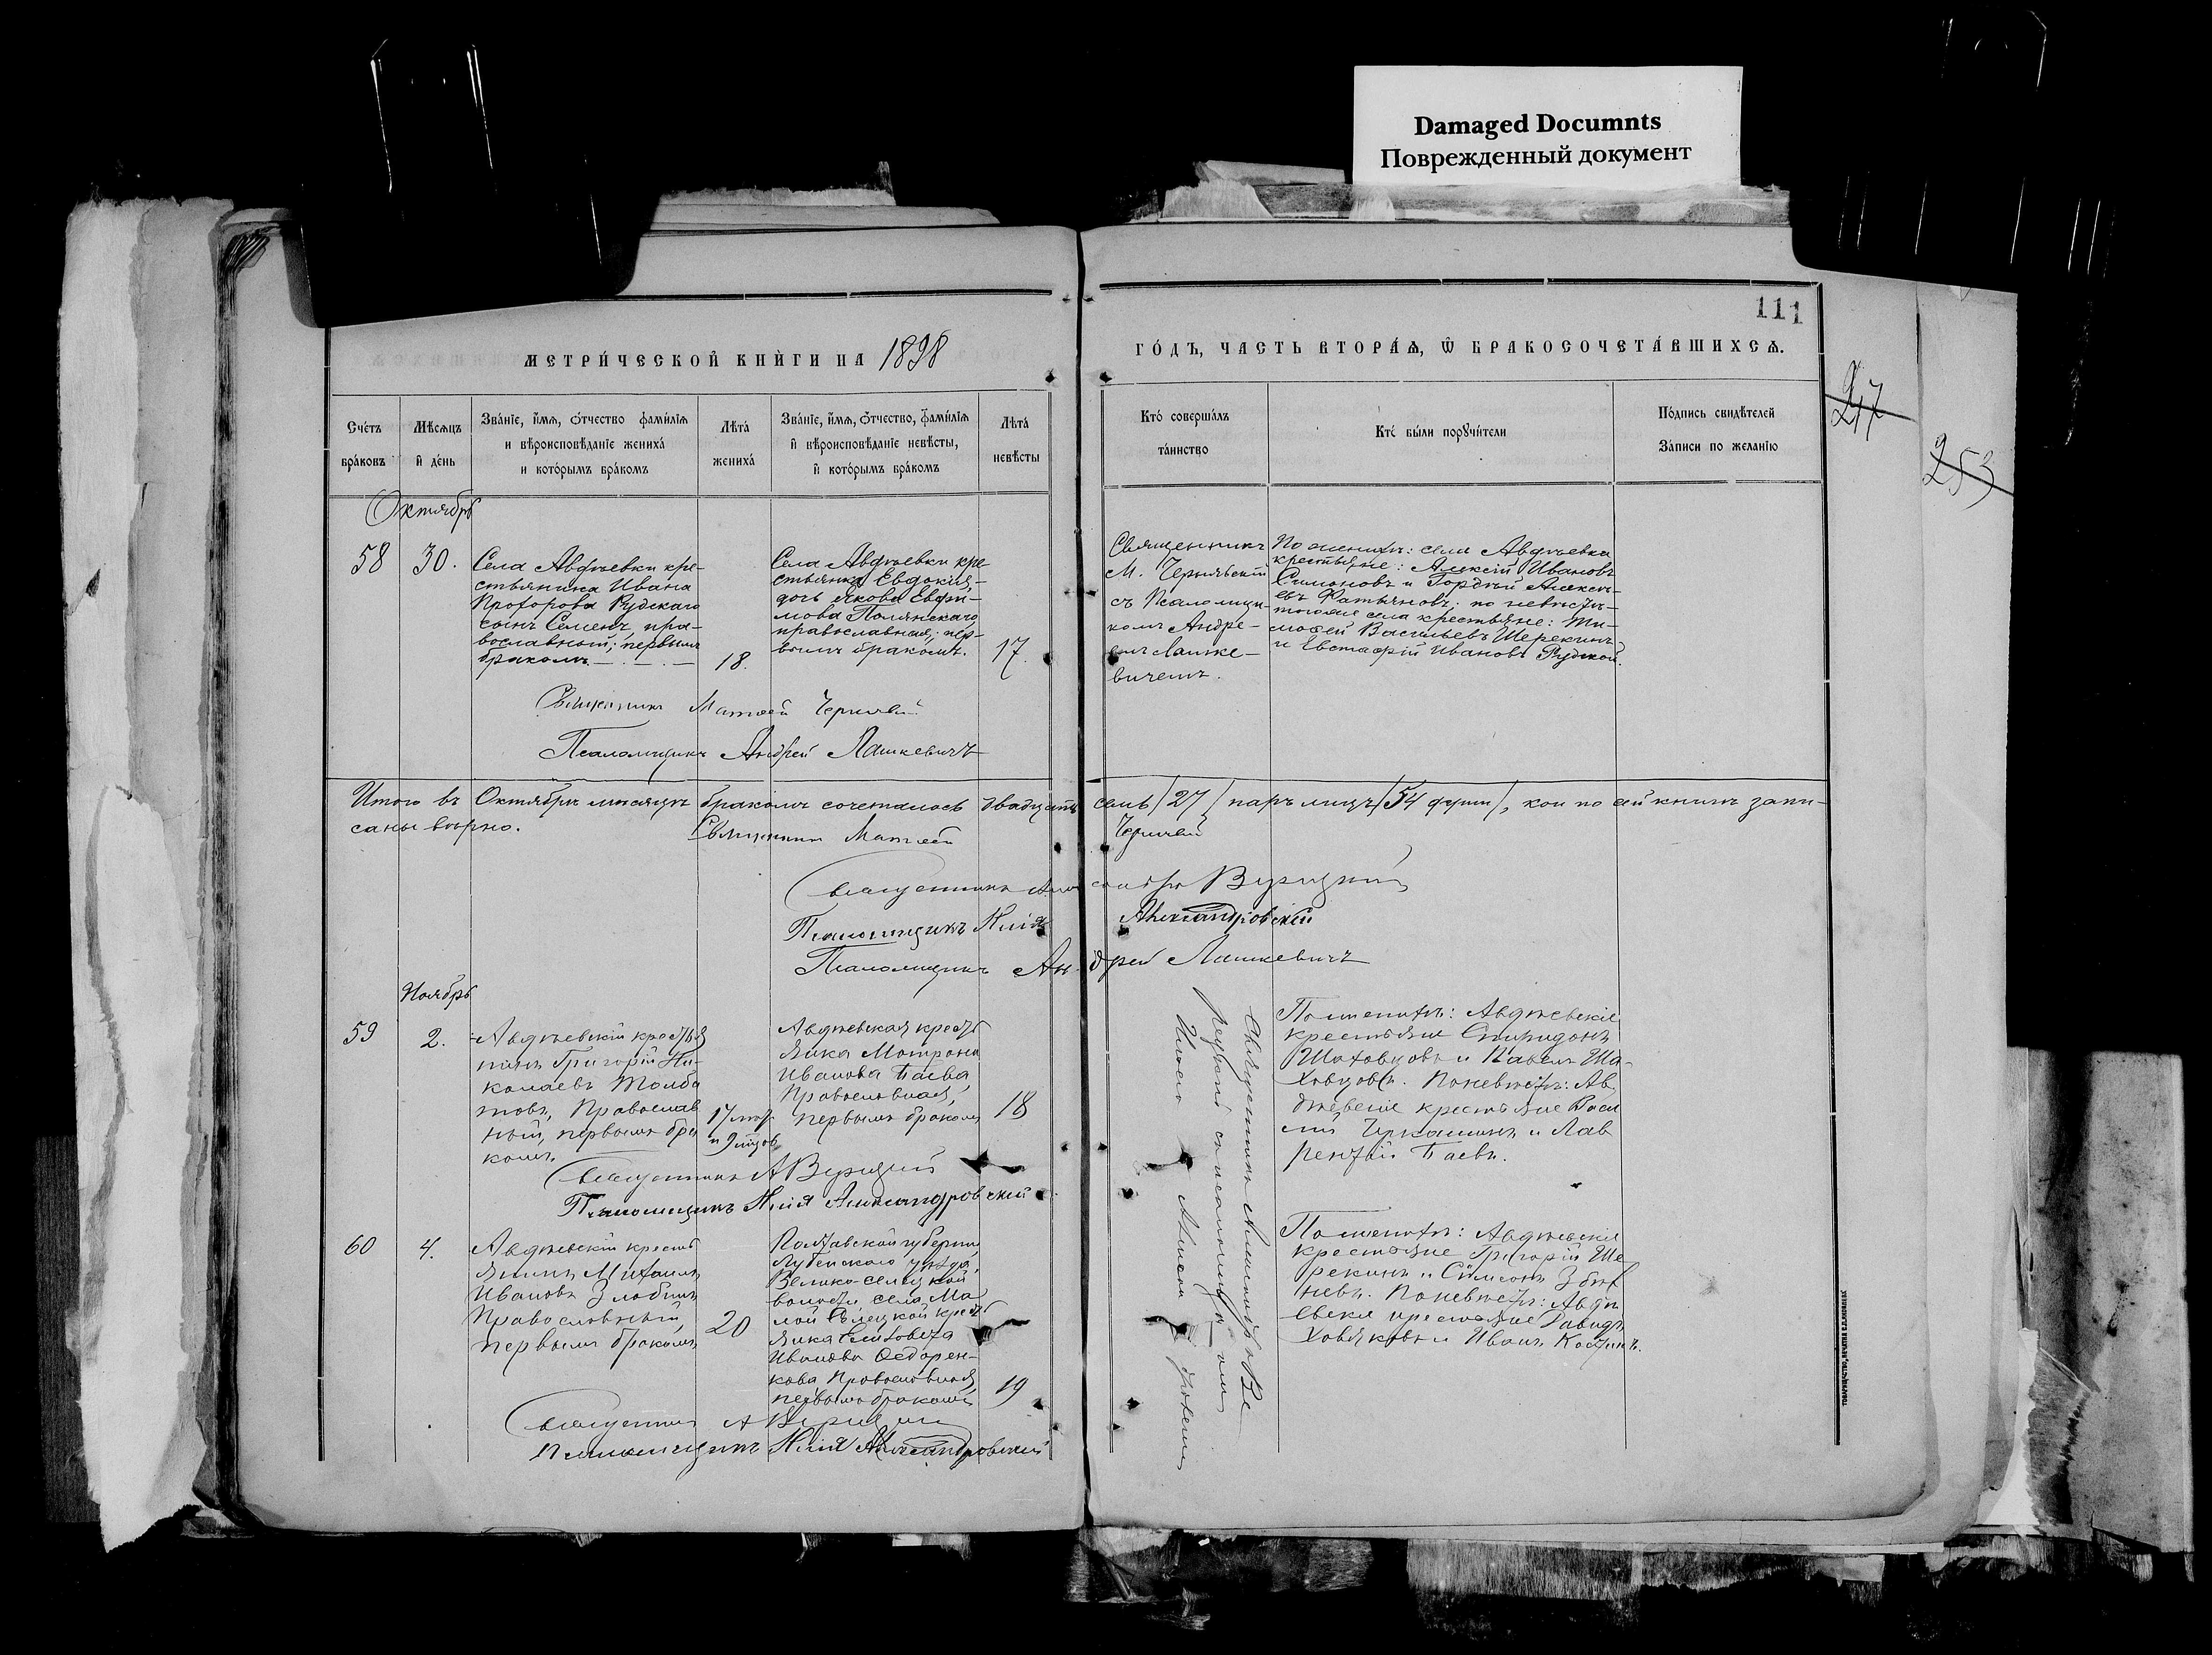 Damaged Documnts
Поврежденный документ
111
МЕТРИ́ЧЕСКОЙ КНИ́ГИ НА 1898
ГО́ДЪ, ЧАСТЬ ВТОРА́Ѧ, Ѿ БРАКОСОЧЕТА́ВШИХСѦ.
247
253
Сче́тъ
бра́ковъ
Мѣсѧцъ
и҆ де́нь
Зва́нїе, и҆́мѧ, ѻ҆́тчество фамилїѧ
и вѣроисповѣданїе жениха́
и кото́рымъ бра́комъ
Лѣта̀
жениха́
Зва́нїе, и҆́мѧ, ѻ҆́тчество, фамилїѧ
и҆ вѣроисповѣданїе невѣсты,
и҆ кото́рымъ бра́комъ
Лѣта̀
невѣсты
Кто́ соверша́лъ
та́инство
Кто́ бы́ли порꙋчи́тели
По́дпись свидѣтелей
За́писи по жела́нїю
Октябрь
58
30.
Села Авдѣевки кре-
стьянина Ивана
Прохорова Рудскаго
сынъ Семенъ, пра-
вославный; первымъ
бракомъ.
18.
Села Авдѣевки кре
стьянка Евдокія,
дочь Якова Евфи-
мова Полянскаго
православная; пер-
вымъ бракомъ.
17.
Священникъ
М. Чернявскій
съ Псаломщи-
комъ Андре-
емъ Лашке-
вичемъ.
По женихѣ: села Авдѣевки
крестьяне: Алексій Ивановъ
Симоновъ и Гордѣй Алексѣ-
евъ Фатьяновъ; по невѣстѣ-
тогоже села крестьяне: Ти-
мофей Васильевъ Шерекинъ
и Евстафій Ивановъ Рудской.
Священникъ Матѳей
Псаломщикъ Андрей Лашкевичъ
Итого въ Октябрѣ мѣсяцѣ бракомъ сочеталось двадцать семь /27/ паръ лицъ /54 души/, кои по сей книгѣ запи-
саны вѣрно.
Священникъ Матѳей
Священникъ Александръ Верицкій
Псаломщикъ Илія Александровскій
Псаломщикъ Андрей Лашкевичъ
Ноябрь
59
2.
Авдѣевскій крестья
нинъ Григорій Ни-
колаевъ Толба
товъ, Православ
ный, первымъ бра
комъ
17 лѣтъ
и 9 мѣсц
Авдѣевская кресть
янка Матрона
Иванова Баева
Православная,
первымъ бракомъ
18
По женихѣ: Авдѣевскіе
крестьяне Спиридонъ
Шаховцовъ и Павелъ Ша-
ховцовъ. По невѣстѣ: Ав
дѣевскіе крестьяне Васи
лій Чуркашинъ и Лав
рентій Баевъ.
Священникъ А Верицкій
Псаломщикъ Илія Александровскій
60
4.
Авдѣевскій кресть
янинъ Михаилъ
Ивановъ Злобинъ
Православный
первымъ бракомъ
20
Полтавской губерніи
Лубенскаго уѣзда,
Велико-селецкой
волости села Ма
лой Селецкой кресть
янка Елисавета
Иванова Ѳедорен-
кова Православная
первымъ бракомъ
19
Священникъ Александръ Ве
рицкій съ псаломщикомъ
По женихѣ: Авдѣевскіе
крестьяне Григорій Ше
рекинъ и Симеонъ Збит
невъ. По невѣстѣ: Авдѣ
евскіе крестьяне Давидъ
Ховяковъ и Иванъ Костинъ.
Священникъ А Верицкій
Псаломщикъ Илія Александровскій